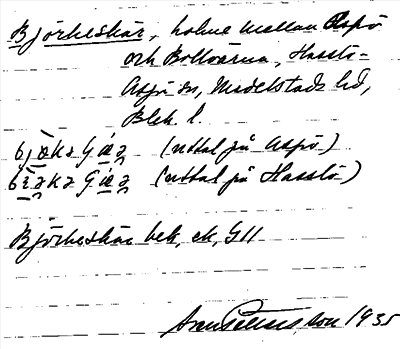 Björkeskär, holme mellan Aspö
och Bollöarna, Hasslö-
Aspö sn, Medelstads hd,
Blek. l.
(uttal på Aspö)
(uttal på Hasslö)
Björkeskär bek, ek, G11
1935